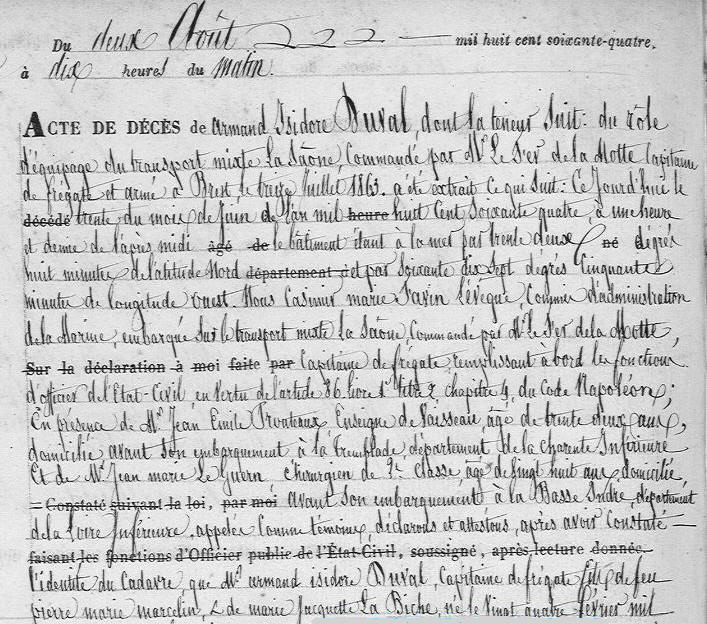 Du deux Août mil huit cent soixante-quatre.
à dix heures du matin.
ACTE DE DÉCÈS de Armand Isidore Duval, dont la teneur suit: du rôle
d'équipage du transport mixte la Saône, Commandé par Mr Le Ser de la Motte Capitaine
de frégate et armé à Brest le treize Juillet 1863. a été extrait ce qui suit: Ce Jourd'hui le
décédé trente du mois de Juin de l'an mil heure huit Cent Soixante quatre, à une heure
et demie de l'après midi âgé de le bâtiment étant à la mer par trente deux né dégrés
huit minutes de latitude Nord département d et par Soixante dix Sept dégrés Cinquante
minutes de longitude ouest. Nous Casimir marie Savin Lévêque, Commis d'administration
de la Marine, embarqué sur le transport mixte la Saône, Commandé par Mr Le Ser de la Motte,
Sur la déclaration à moi faite par Capitaine de frégate, remplissant à bord les fonctions
d'officier de l'Etat-Civil, en vertu de l'article 86 livre 1er titre 2 chapitre 4, du Code Napoléon;
En présence de Mr Jean Emile Proteaux, Enseigne de Vaisseau, âgé de trente deux ans,
domicilié avant son embarquement à la tremblade, département de la charente Inférieure
Et de Mr Jean marie Le Guern, chirurgien de 2e classe âgé de vingt huit ans domicilié
Constaté suivant la loi, par moi avant son embarquement à la Basse Indre, département
de la Loire Inférieure, appelés Comme témoins, déclarons et attestons, après avoir Constaté
faisant les fonctions d'Officier public de l'État-Civil, soussigné, après lecture donnée.
l'identité du Cadavre, que Mr armand isidore Duval, Capitaine de frégate fils de feu
pierre marie marcelin, & de marie Jacquette La Biche, né le vingt quatre février mil